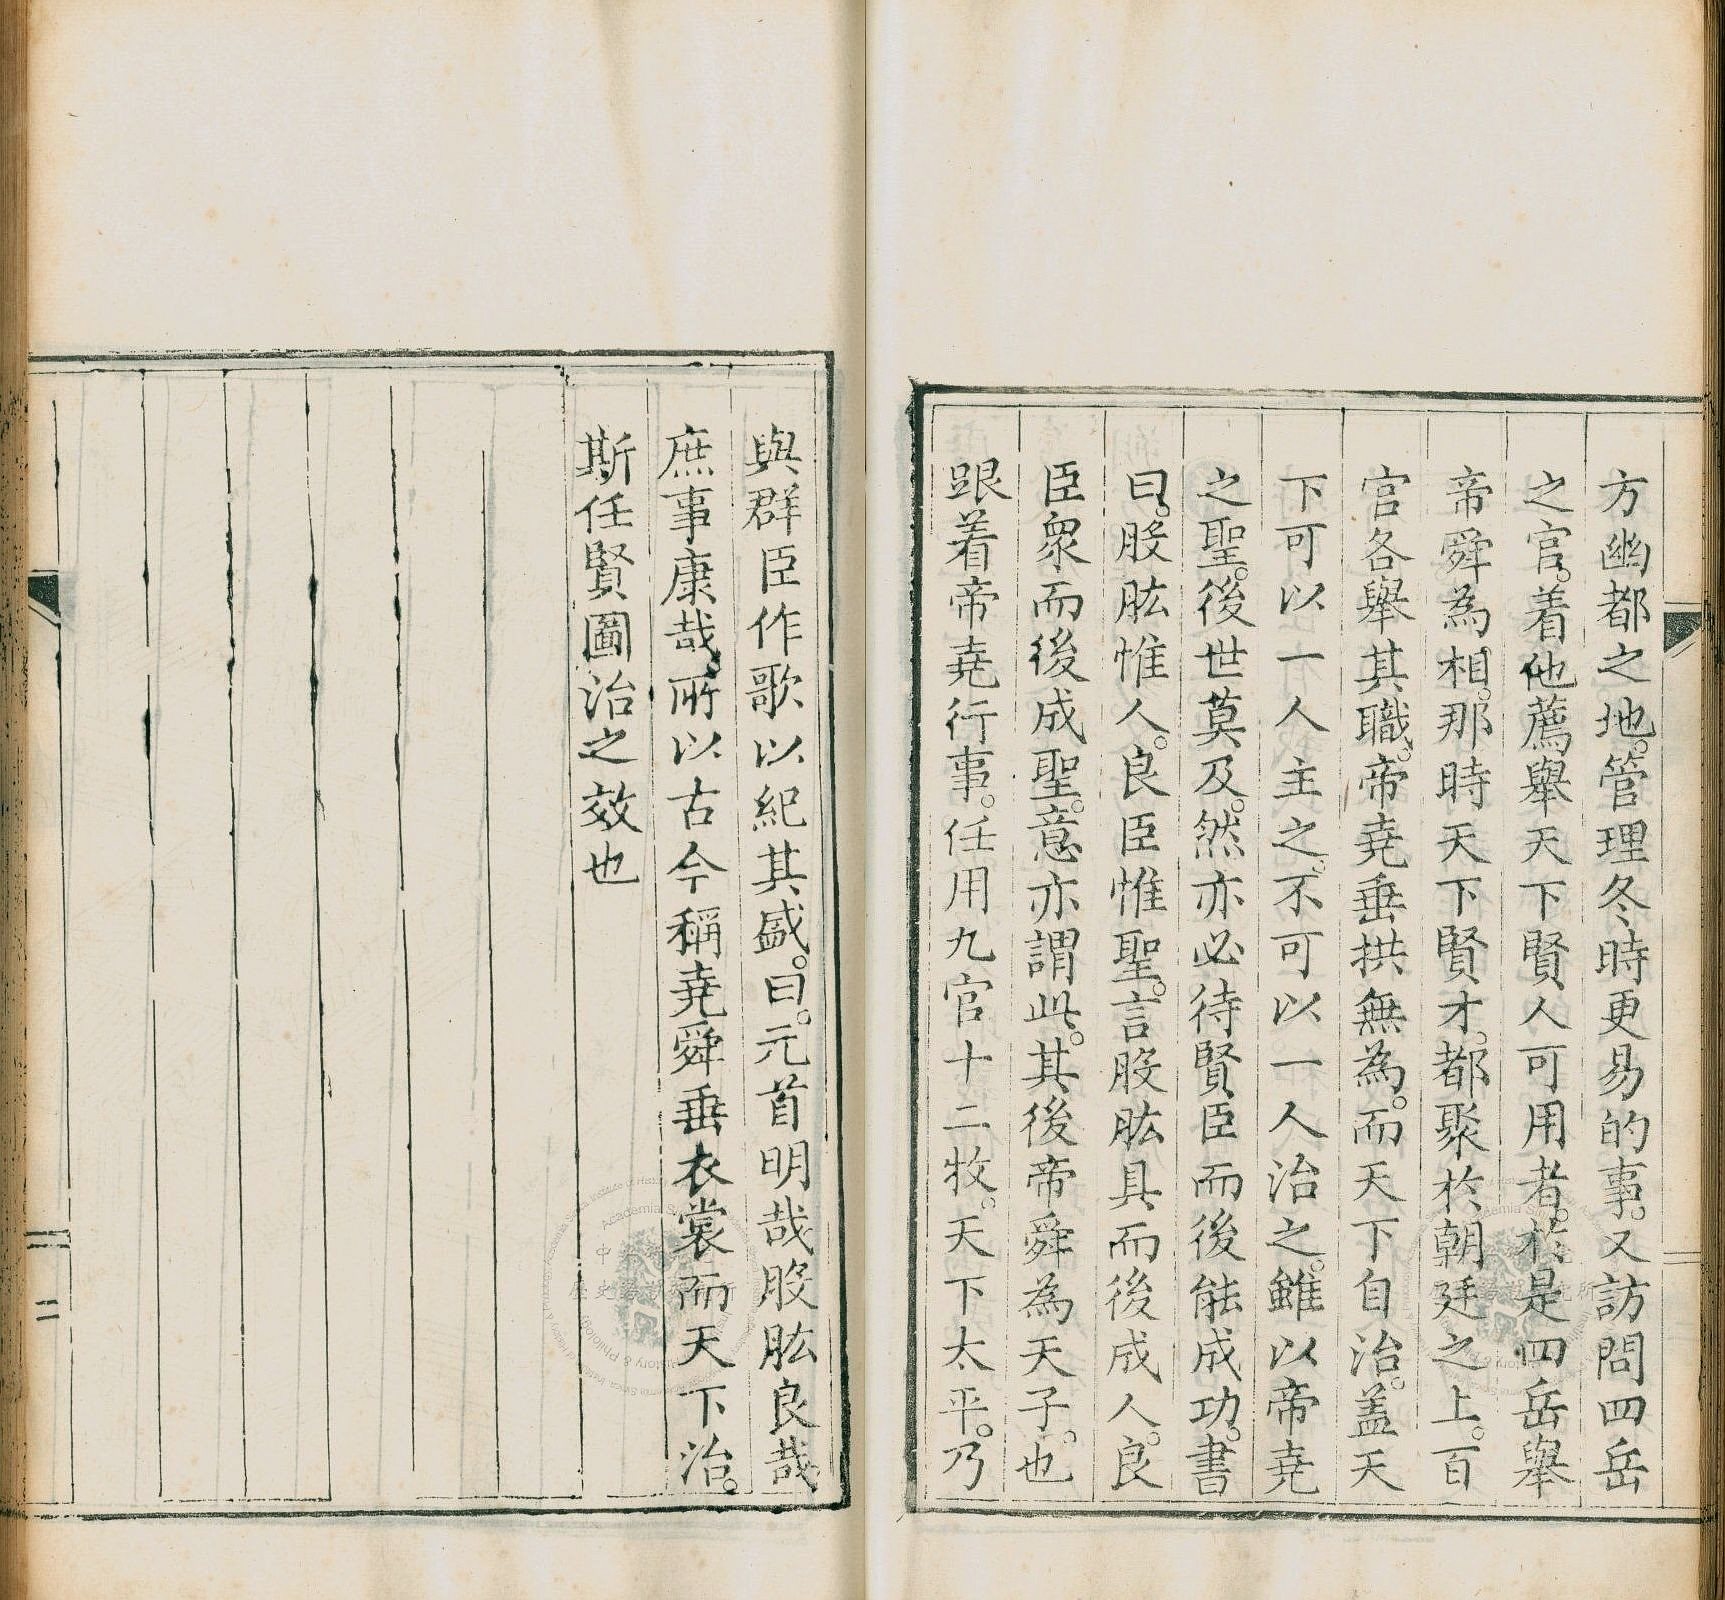 方幽都之地。管理冬時更易的事。又訪問四岳
之官。着他薦舉天下賢人可用者。於是四岳舉
帝舜為相。那時天下賢才。都聚於朝廷之上。百
官各舉其職。帝堯垂拱無為。而天下自治。蓋天
下可以一人主之。不可以一人治之。雖以帝堯
之聖。後世莫及。然亦必待賢臣而後能成功。書
曰。股肱惟人。良臣惟聖。言股肱具而後成人。良
臣眾而後成聖。意亦謂此。其後帝舜為天子。也
跟着帝堯行事。任用九官十二牧。天下太平。乃
與群臣作歌以紀其盛。曰。元首明哉股肱良哉
庶事康哉。所以古今稱堯舜垂衣裳而天下治。
斯任賢圖治之效也
二